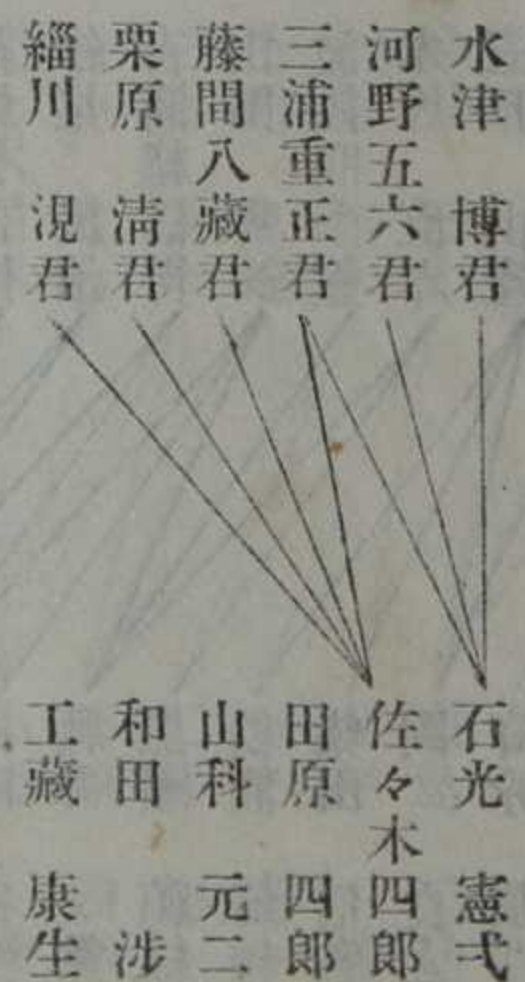 水津　博君
河野五六君
三浦重正君
藤間八藏君
栗原　淸君
緇川　滉君
石光　憲弌
佐々木四郎
田原　四郎
山科　元二
和田　涉
工藏　康生